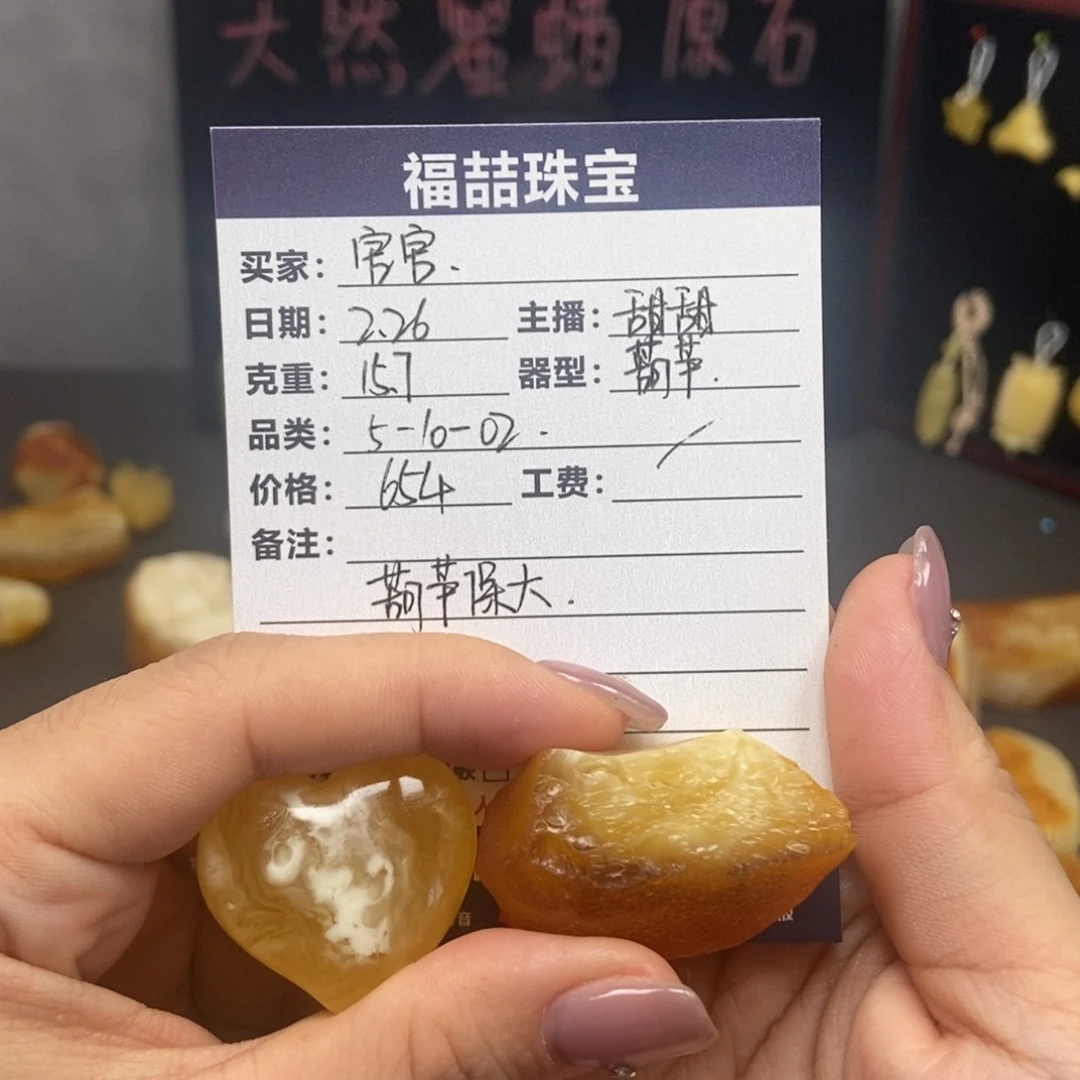 天然蜜蜡原石
福喆珠宝
买家：官官.
日期：2.26 主播：甜甜
克重：15.7 器型：葫芦.
品类：5-10-02.
价格：654 工费：/
备注：
葫芦保大.
音
版